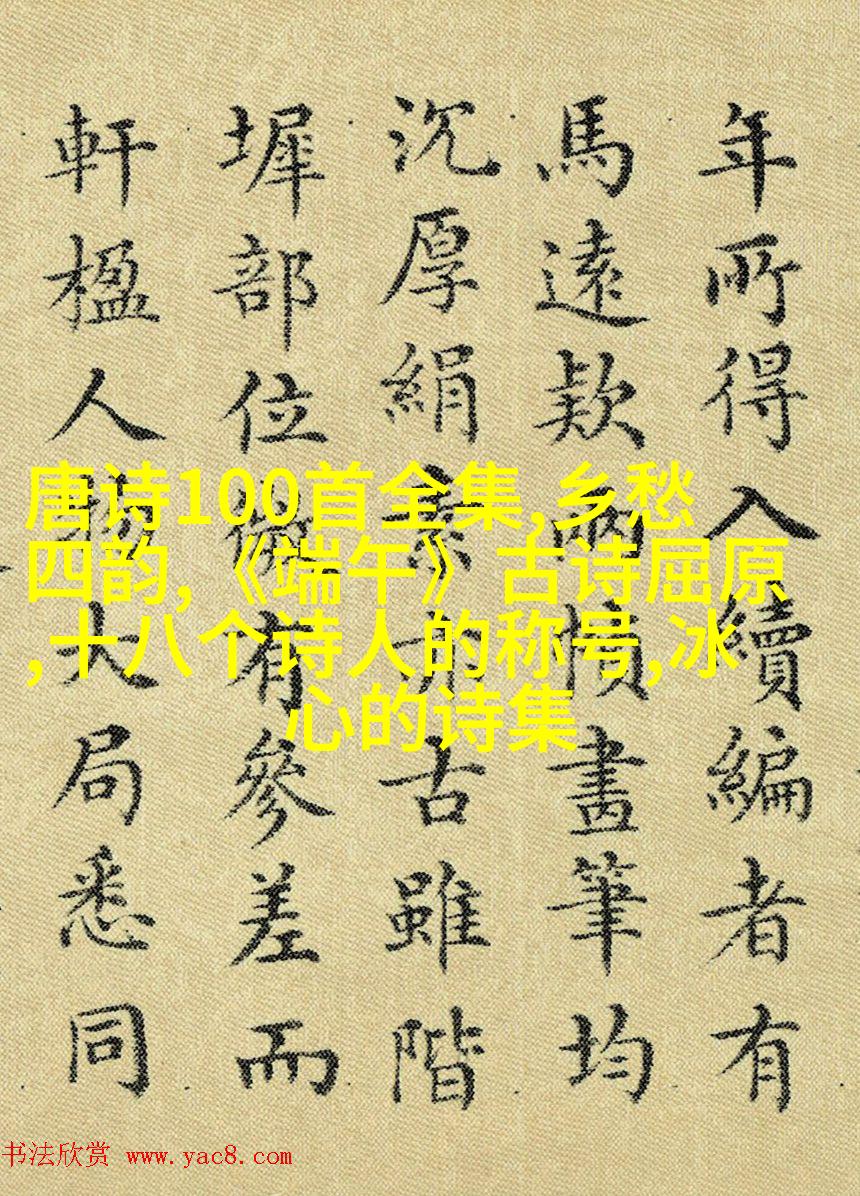 年所得入續編者有
馬遠欵兩幀畫筆均
沉厚絹素亦古雖階
墀部位微有參差而
軒楹人物大局悉同
唐诗100首全集,乡愁
四韵,《端午》古诗屈原
,十八个诗人的称号,冰
心的诗集
书法欣赏 www.yac8.com